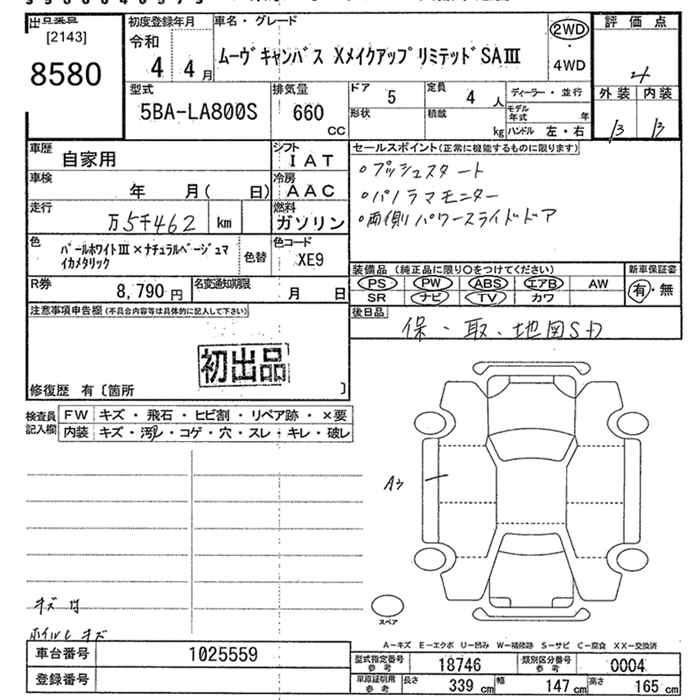 [2143]
8580
初度登録年月
令和
4年 4月
車名・グレード
ムーヴキャンバス XメイクアップリミテッドSAⅢ
2WD
・
4WD
評価点
4
型式
5BA-LA800S
排気量
660
CC
ドア 5
定員 4 人
形状
積載 kg
ディーラー・並行
モデル年式 年
ハンドル 左・右
外装 内装
B B
車歴
自家用
シフト
IAT
車検
年 月( 日)
冷房
AAC
走行
万5千462 km
燃料
ガソリン
色
パールホワイトⅢ×ナチュラルベージュマイカメタリック
色替
色コード
XE9
R券
8,790 円
名変通知期限
月 日
セールスポイント(正常に機能するものに限ります)
・プッシュスタート
・パノラマモニター
・両側パワースライドドア
装備品 (純正品に限り○をつけてください)
PS PW ABS エアB AW
SR ナビ TV カワ
新車保証書
有・無
後日品
保・取・地図SD
注意事項申告欄(不具合内容等は具体的に記入して下さい)
初出品
修復歴 有〔箇所 〕
検査員記入欄
FW キズ・飛石・ヒビ割・リペア跡・×要
内装 キズ・汚レ・コゲ・穴・スレ・キレ・破レ
A3
スペア
ホイルL キズ
A-キズ E-エクボ U-凹み W-補修跡 S-サビ C-腐食 XX-交換済
車台番号
1025559
登録番号
型式指定番号 参考
18746
類別区分番号 参考
0004
車庫証明用 参考
長さ 339 cm
幅 147 cm
高さ 165 cm